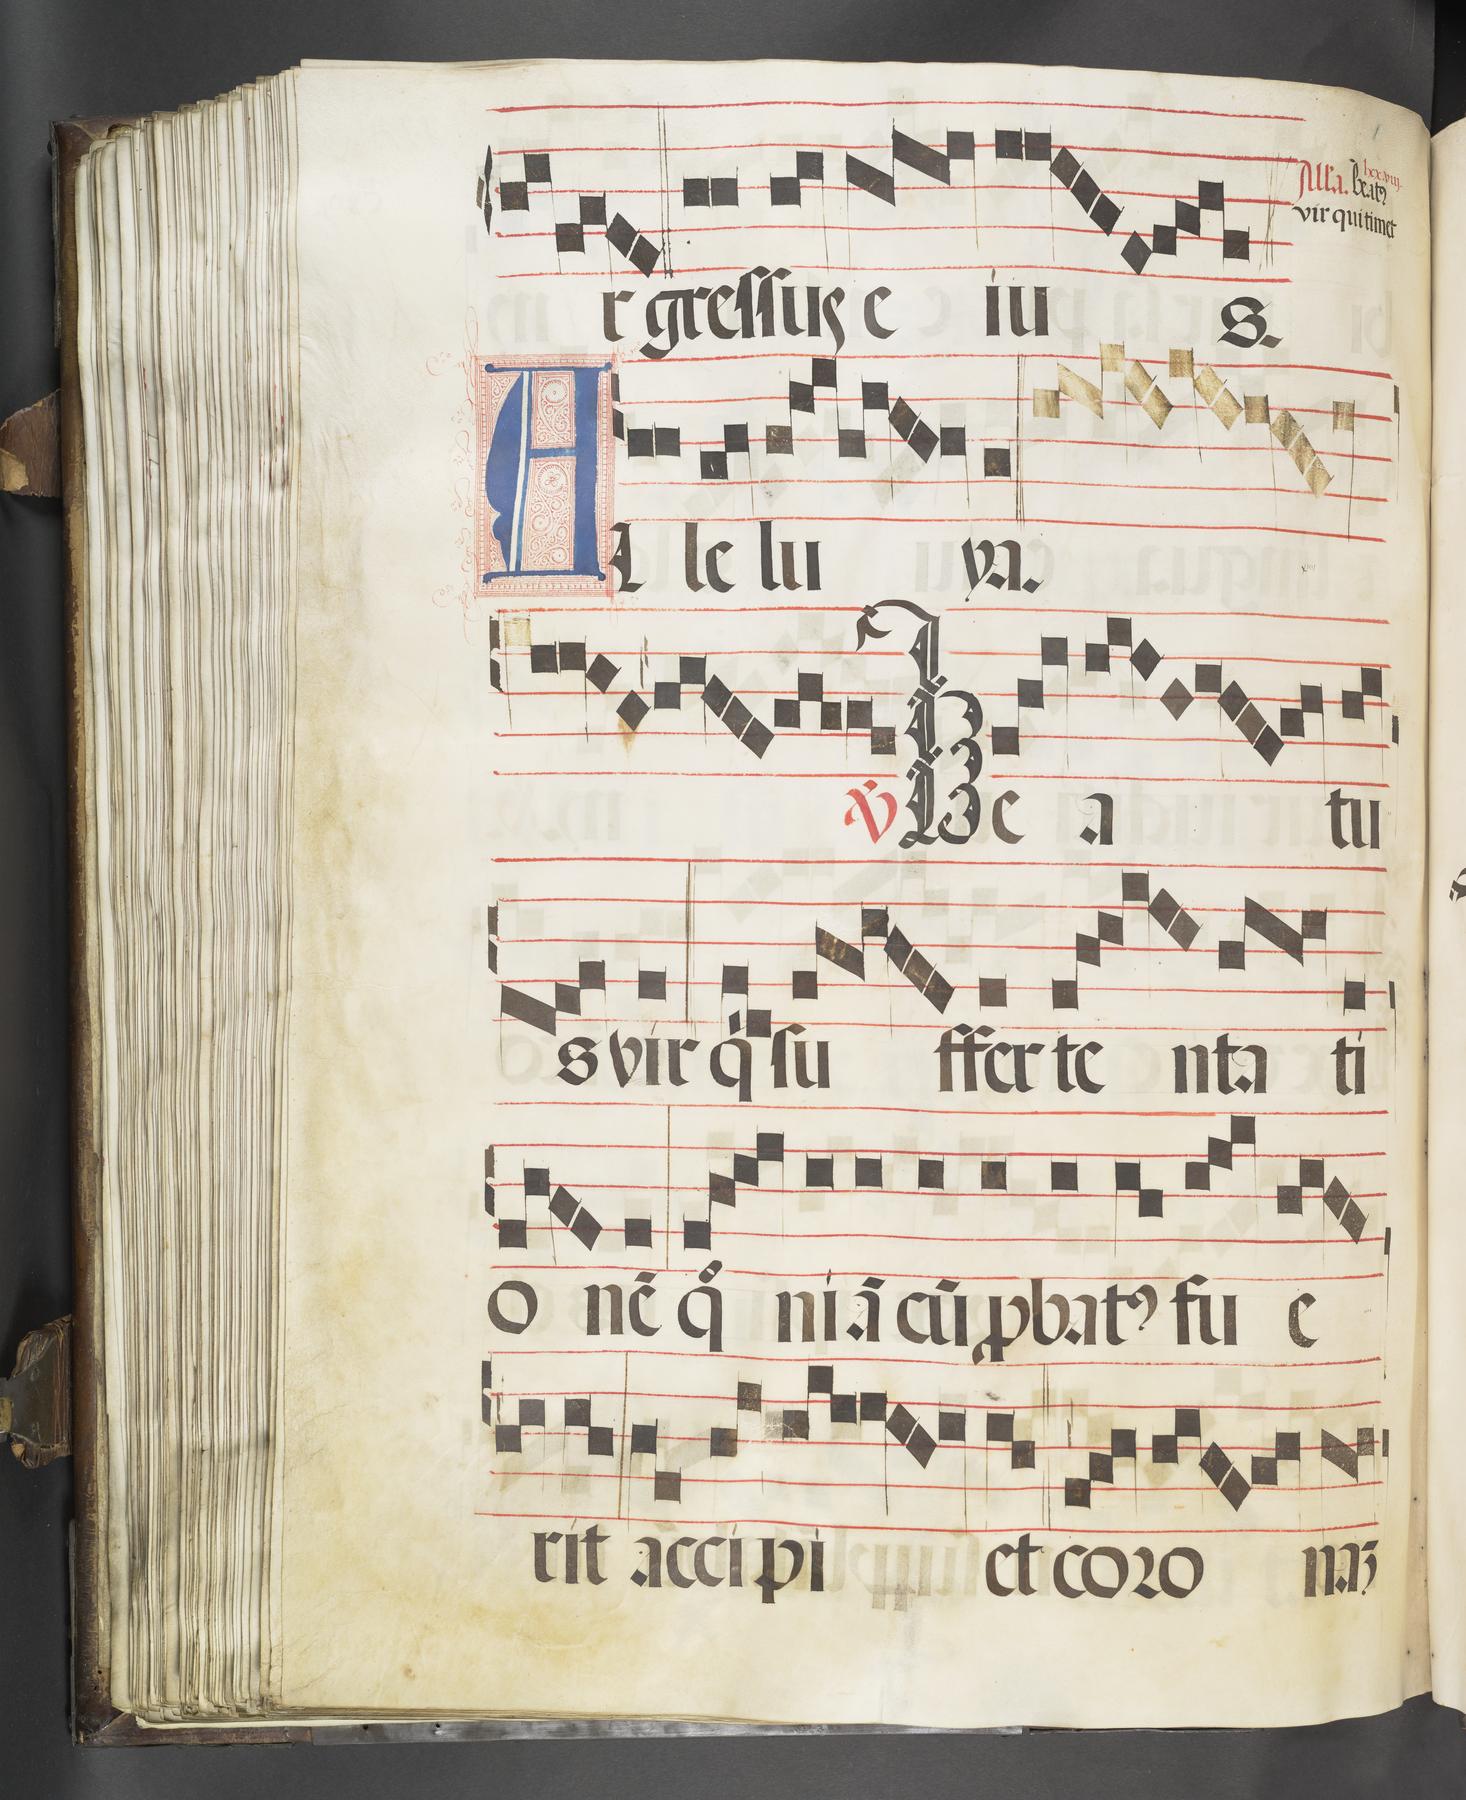 Alla. beatꝰ
vir qui timet
r gressuſ e iu s.
Al le lu ya.
℣ Be a tu
s vir q̇ su ffer te nta ti
o nē qͦ niā cū ꝓbatꝰ fu e
rit acci pi et coro naʒ